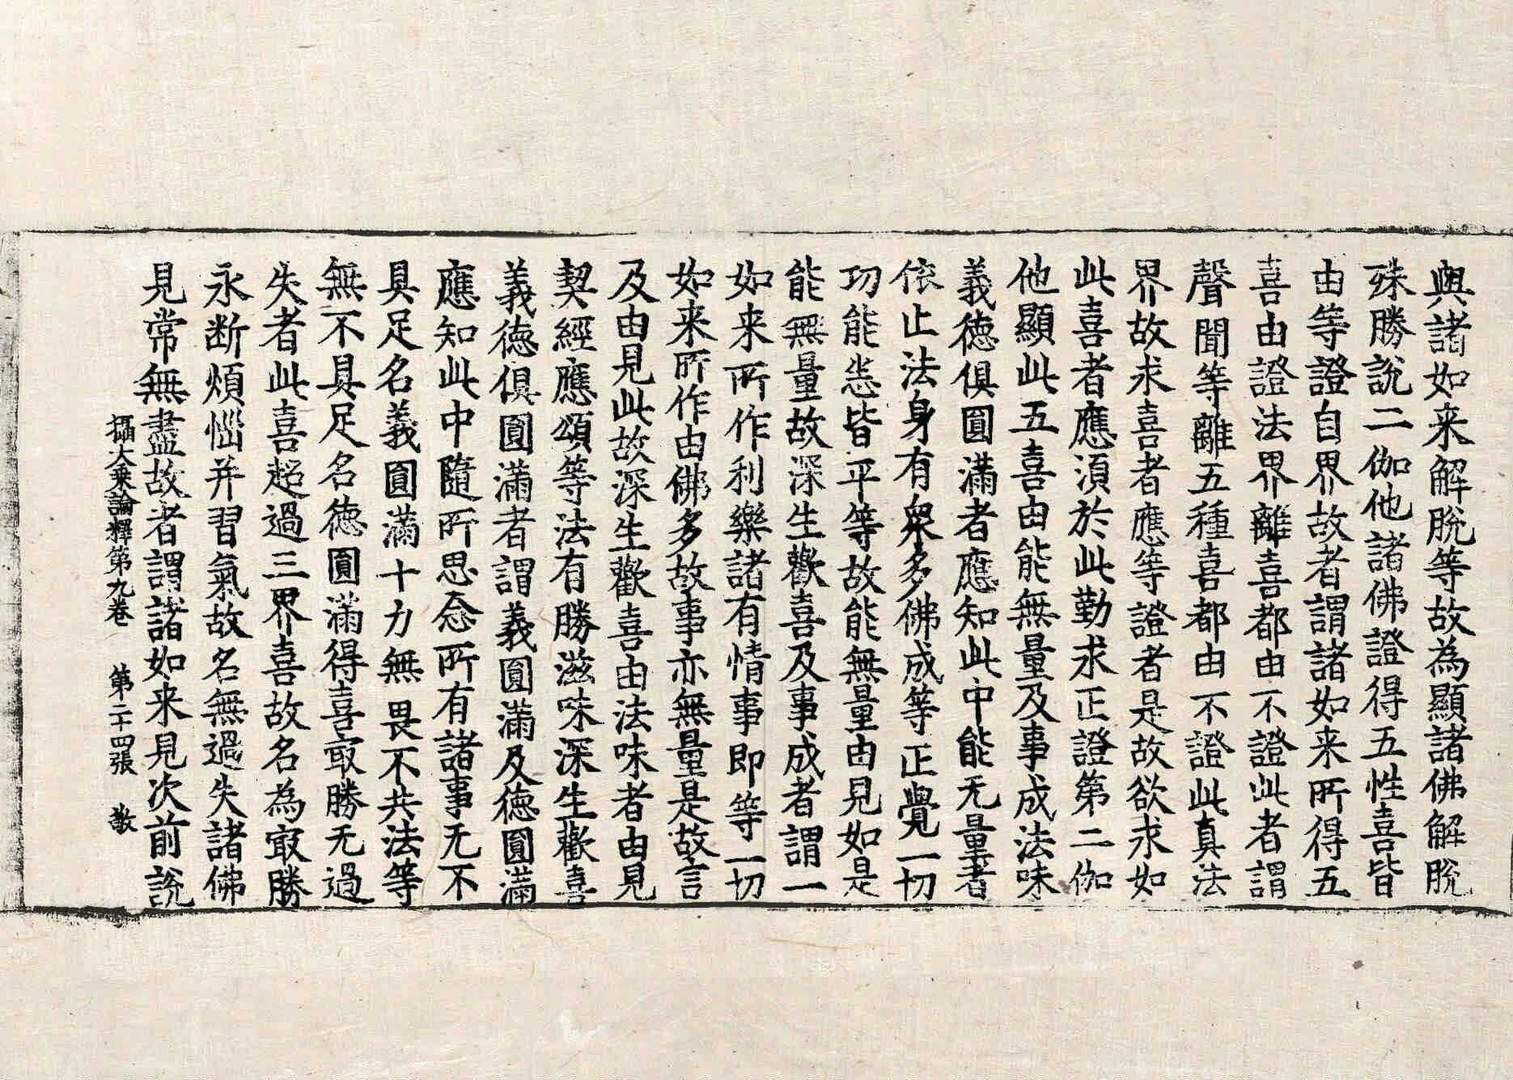 與諸如来解脫等故為顯諸佛解脫
殊勝說二伽他諸佛證得五性喜皆
由等證自界故者謂諸如来所得五
喜由證法界離喜都由不證此者謂
聲聞等離五種喜都由不證此真法
界故求喜者應等證者是故欲求如
此喜者應湏於此勤求正證第二伽
他顯此五喜由能無量及事成法味
義德俱圓滿者應知此中能无量者
依止法身有衆多佛成等正覺一切
功能悉皆平等故能無量由見如是
能無量故深生歡喜及事成者謂一
如来所作利樂諸有情事即等一切
如来所作由佛多故事亦無量是故言
及由見此故深生歡喜由法味者由見
契經應頌等法有勝滋味深生歡喜
義德俱圓滿者謂義圓滿及德圓滿
應知此中隨所思念所有諸事无不
具足名義圓滿十力無畏不共法等
無不具足名德圓滿得喜冣勝无過
失者此喜超過三界喜故名為冣勝
永断煩惱并習氣故名無過失諸佛
見常無盡故者謂諸如来見次前說
攝大乗論釋第九卷　第二十四張　敬